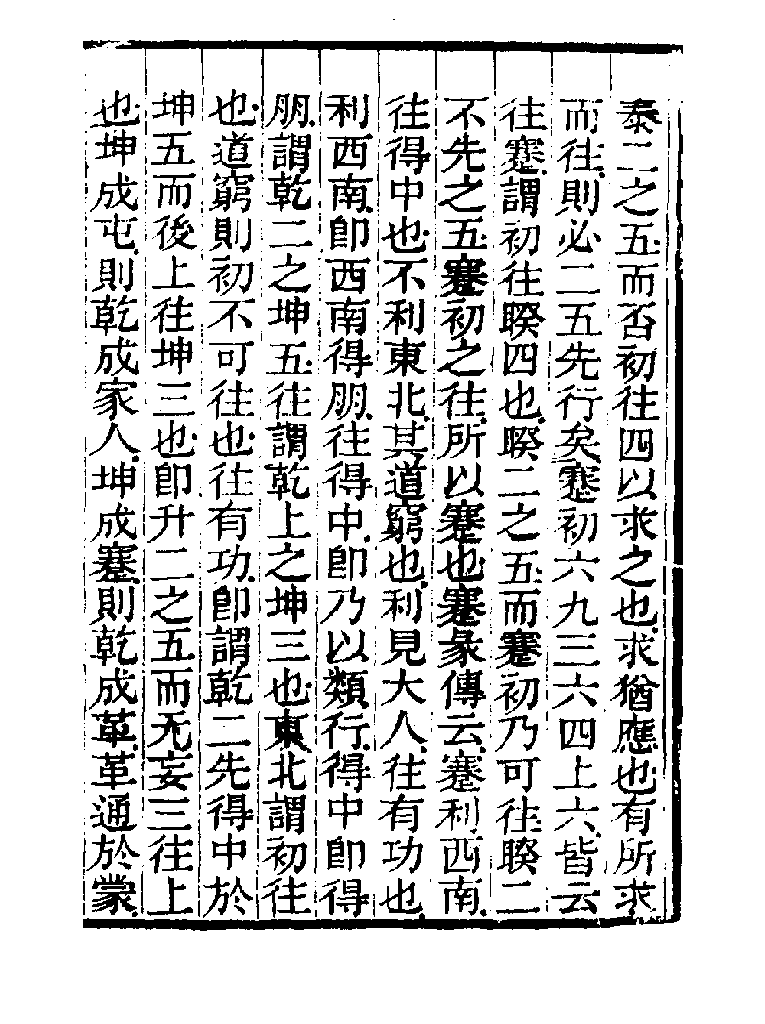 泰二之五而否初往四以求之也求猶應也有所求
而往則必二五先行矣蹇初六九三六四上六皆云
往蹇謂初往睽四也睽二之五而蹇初乃可往睽二
不先之五蹇初之往所以蹇也蹇彖傳云蹇利西南
往得中也不利東北其道窮也利見大人往有功也
利西南卽西南得朋往得中卽乃以類行得中卽得
朋謂乾二之坤五往謂乾上之坤三也東北謂初往
也道窮則初不可往也往有功卽謂乾二先得中於
坤五而後上往坤三也卽升二之五而无妄三往上
也坤成屯則乾成家人坤成蹇則乾成革革通於蒙